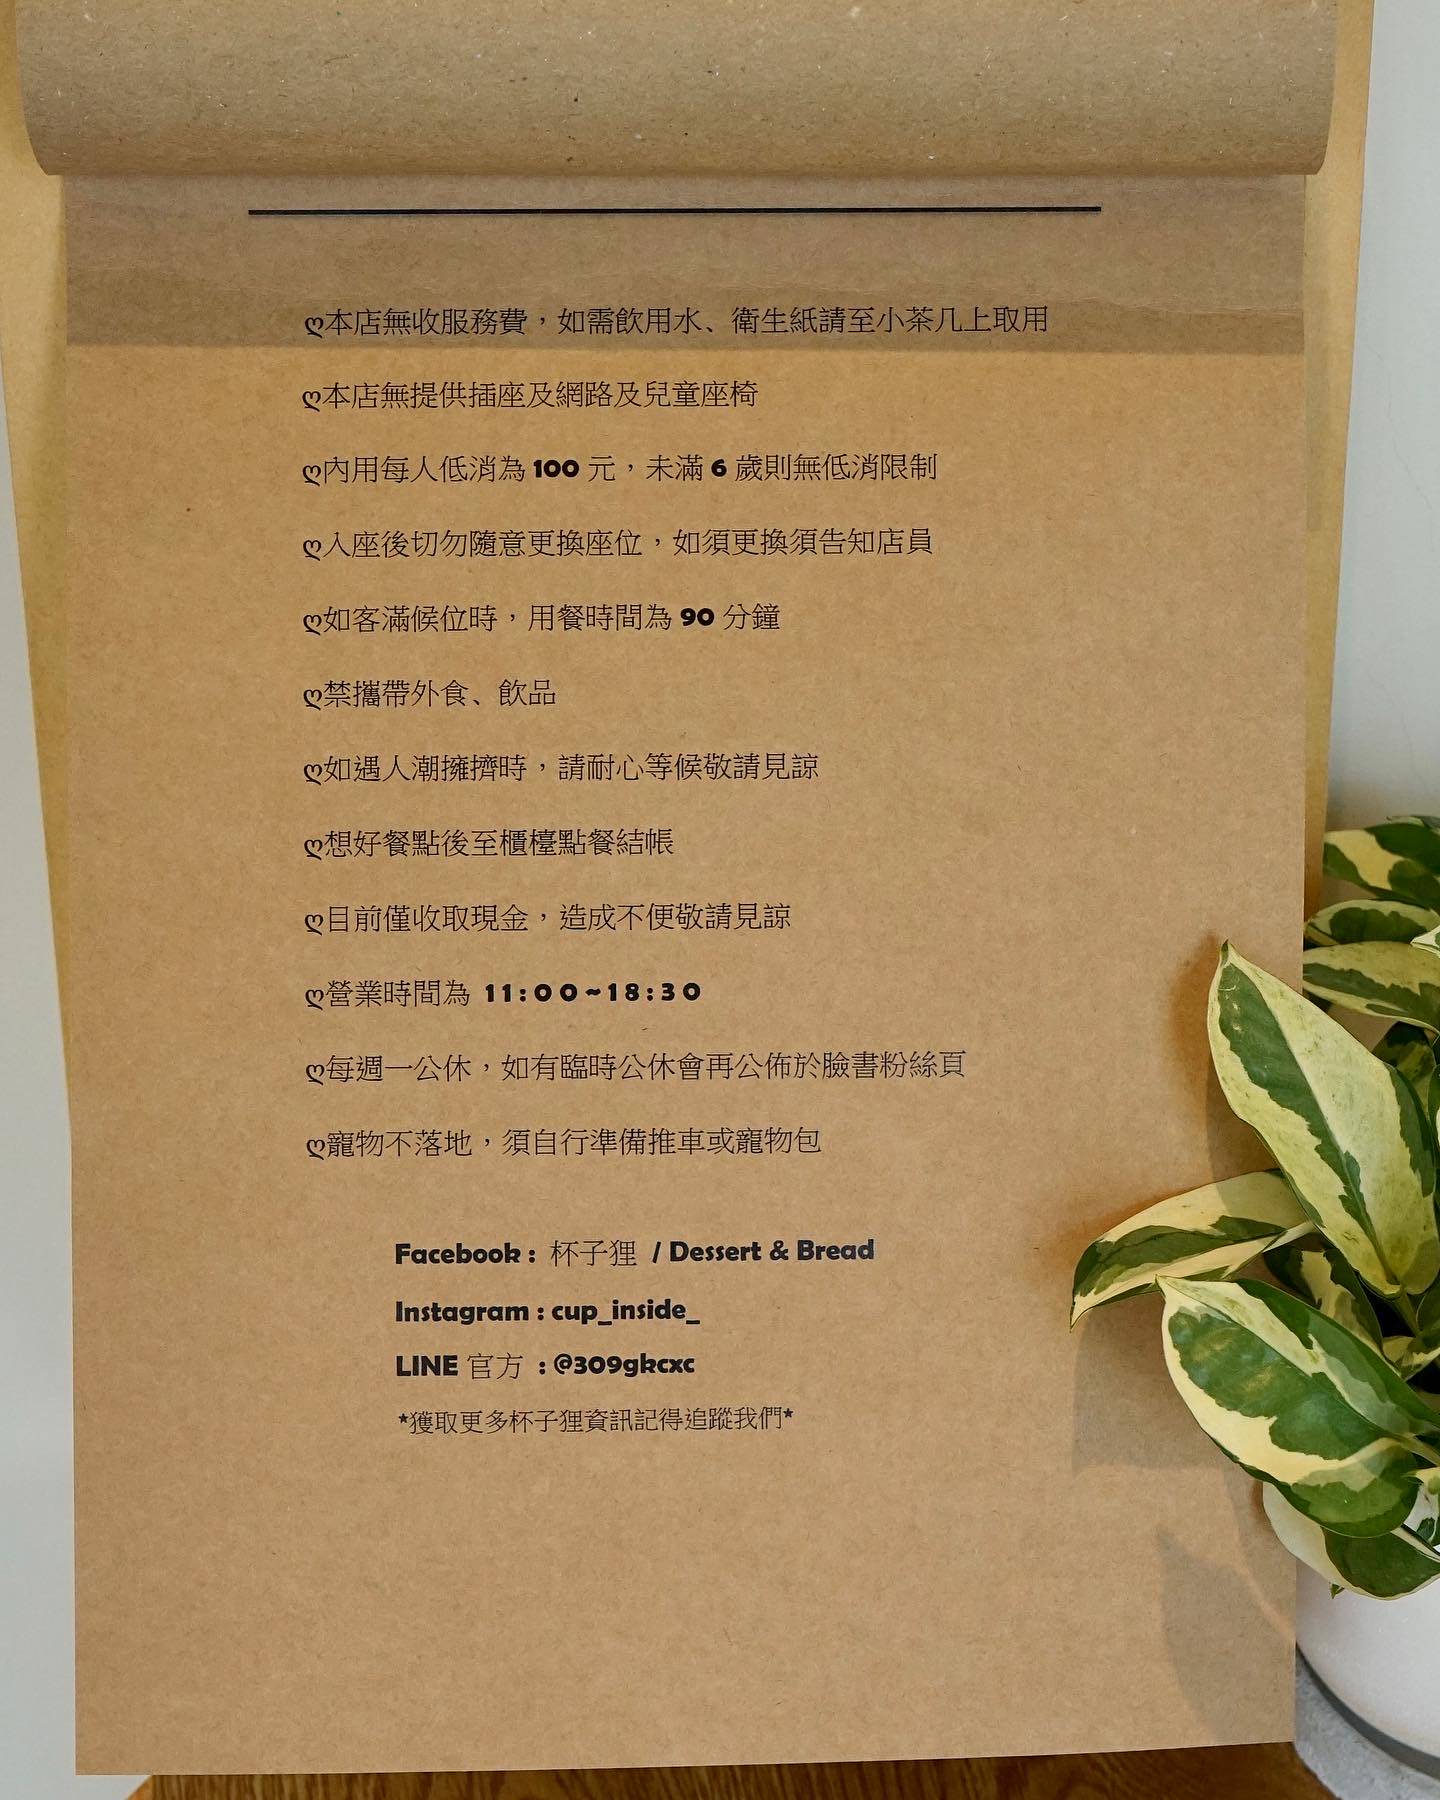 ღ本店無收服務費，如需飲用水、衛生紙請至小茶几上取用
ღ本店無提供插座及網路及兒童座椅
ღ內用每人低消為 100 元，未滿 6 歲則無低消限制
ღ入座後切勿隨意更換座位，如須更換須告知店員
ღ如客滿候位時，用餐時間為 90 分鐘
ღ禁攜帶外食、飲品
ღ如遇人潮擁擠時，請耐心等候敬請見諒
ღ想好餐點後至櫃檯點餐結帳
ღ目前僅收取現金，造成不便敬請見諒
ღ營業時間為 11:00~18:30
ღ每週一公休，如有臨時公休會再公佈於臉書粉絲頁
ღ寵物不落地，須自行準備推車或寵物包
Facebook : 杯子狸 / Dessert & Bread
Instagram : cup_inside_
LINE 官方 : @309gkcxc
*獲取更多杯子狸資訊記得追蹤我們*